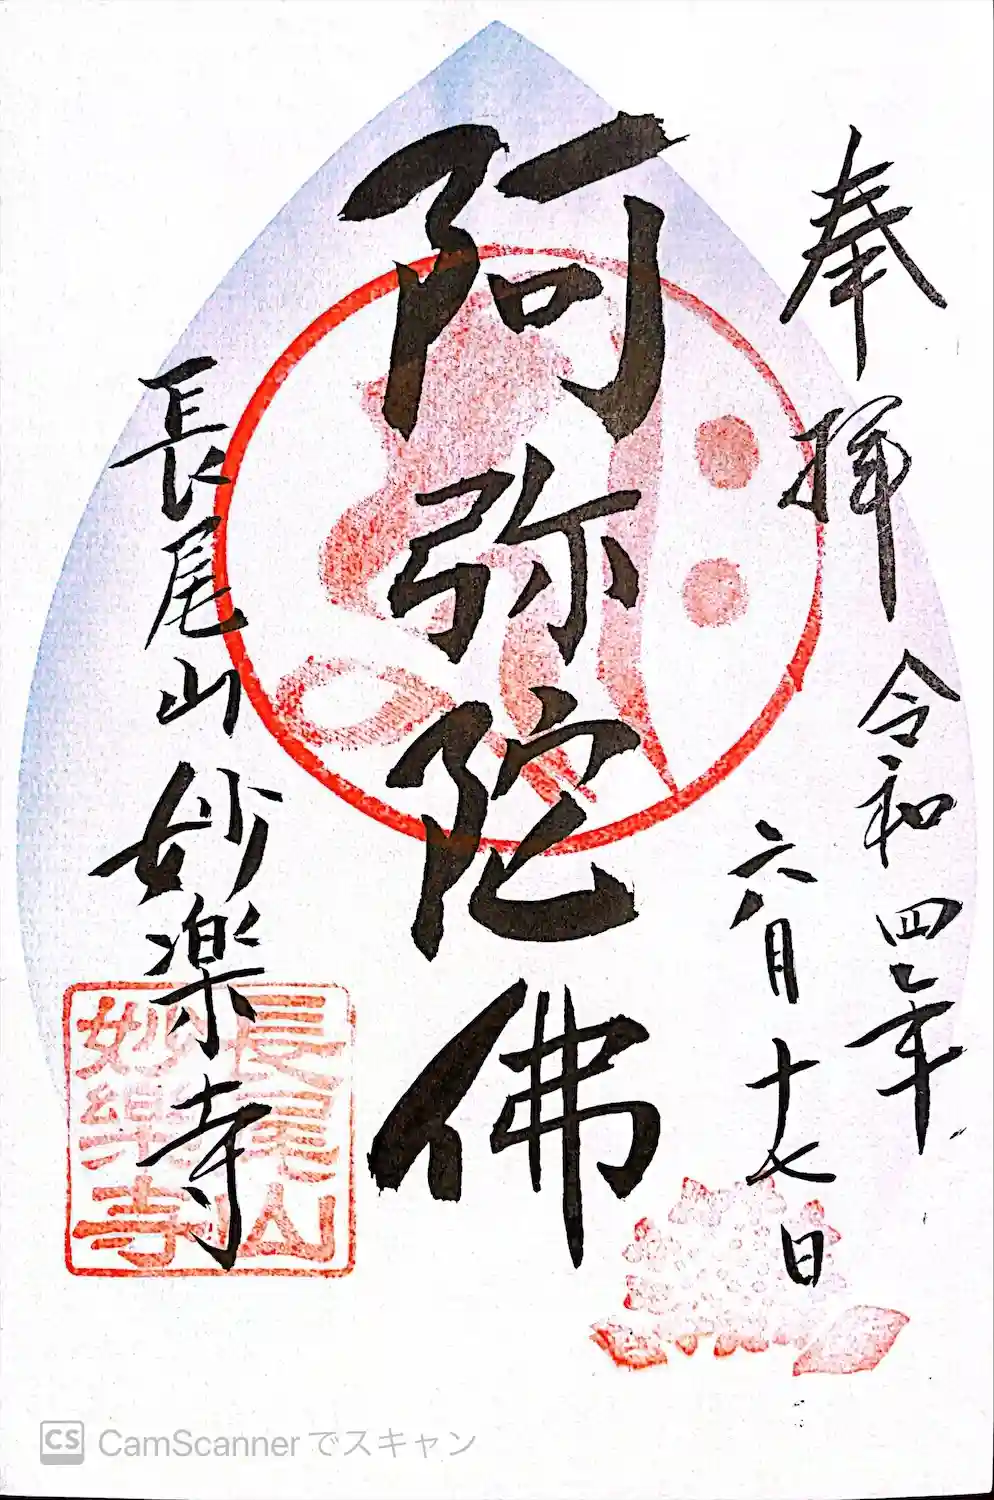 奉拝
令和四年
六月十七日
阿弥陀佛
長尾山妙楽寺
長尾山
妙樂寺
CS CamScannerでスキャン